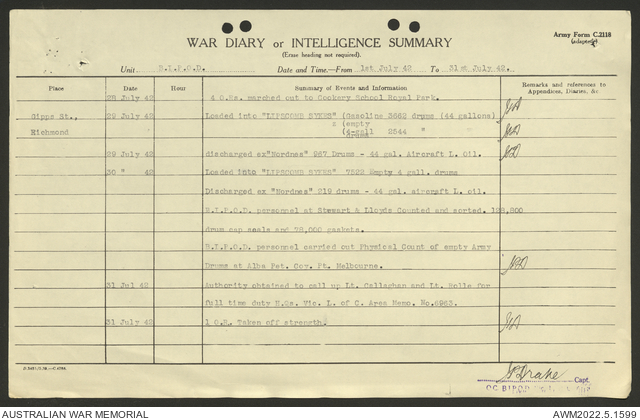 Army Form C.2118
(adapted).
WAR DIARY or INTELLIGENCE SUMMARY
(Erase heading not required).
Unit B.I.P.O.D. Date and Time.—From 1st July 42 To 31st July 42.
Place Date Hour Summary of Events and Information Remarks and references to Appendices, Diaries, &c
28 July 42 4 O.Rs. marched out to Cookery School Royal Park.
Gipps St., 29 July 42 Loaded into "LIPSCOMB SYKES" (Gasoline 3662 drums (44 gallons)
x (empty
Richmond (4-gall 2544 "
drums
29 July 42 discharged ex"Nordnes" 967 Drums - 44 gal. Aircraft L. oil.
30 " 42 Loaded into "LIPSCOMB SYKES" 7522 Empty 4 gall. drums
Discharged ex "Nordnes" 219 drums - 44 gal. aircraft L. oil.
B.I.P.O.D. personnel at Stewart & Lloyds Counted and sorted. 128,800
drum cap seals and 78,000 gaskets.
B.I.P.O.D. personnel carried out Physical Count of empty Army
Drums at Alba Pet. Coy. Pt. Melbourne.
31 Jul 42 Authority obtained to call up Lt. Callaghan and Lt. Rolle for
full time duty H.Qs. Vic. L. of C. Area Memo. No.6963.
31 July 42 1 O.R. Taken off strength.
Drake Capt.
OC BIPOD
AUSTRALIAN WAR MEMORIAL AWM2022.5.1599